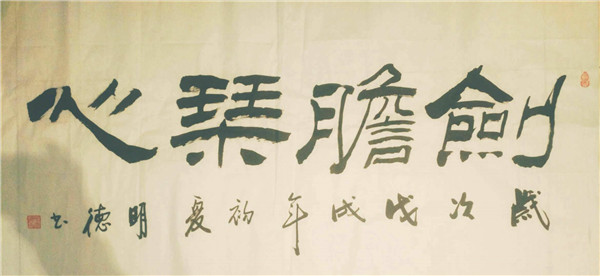 劍膽琹心
歲次戊戌年初夏明德书